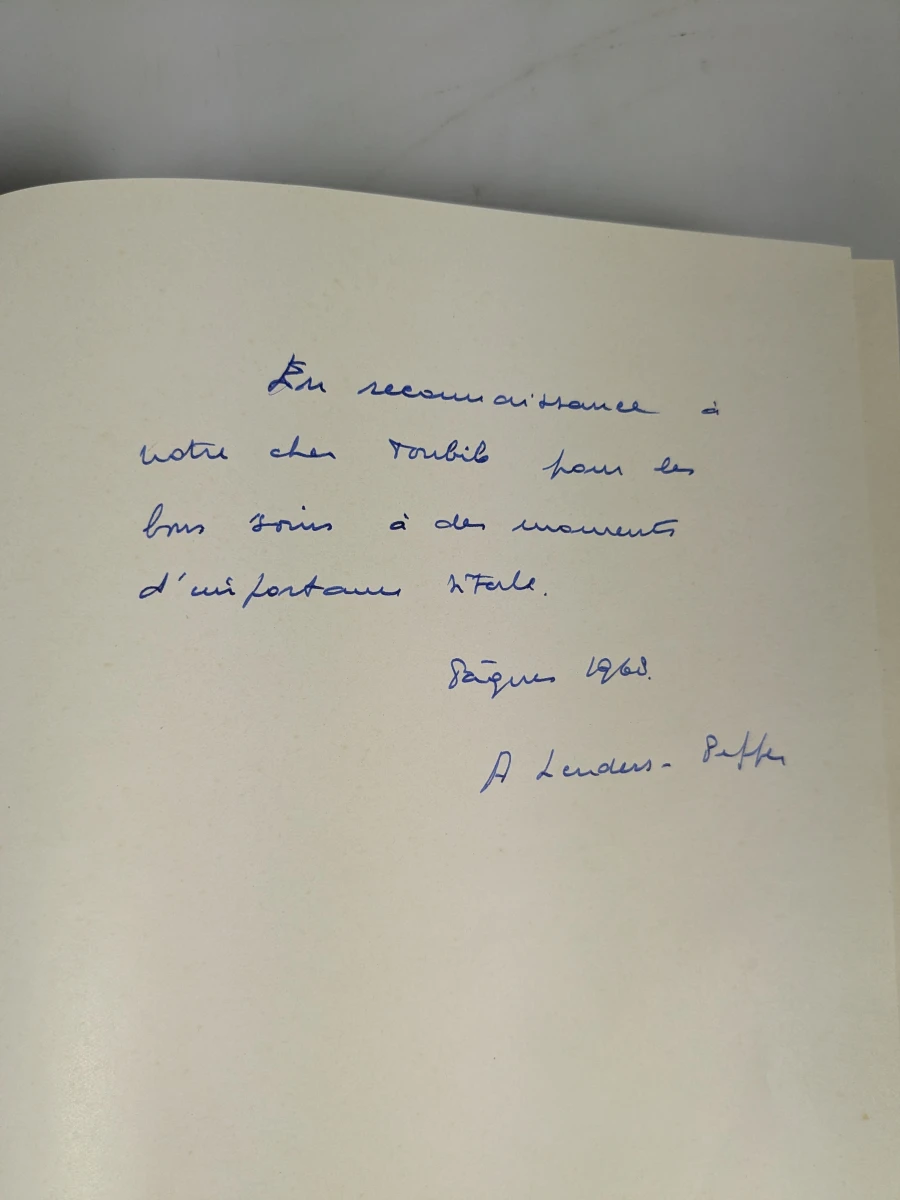 En reconnaissance à
notre cher Toubib pour les
bons soins à des moments
d'importance vitale.
Pâques 1968.
A Lenders - Peffer